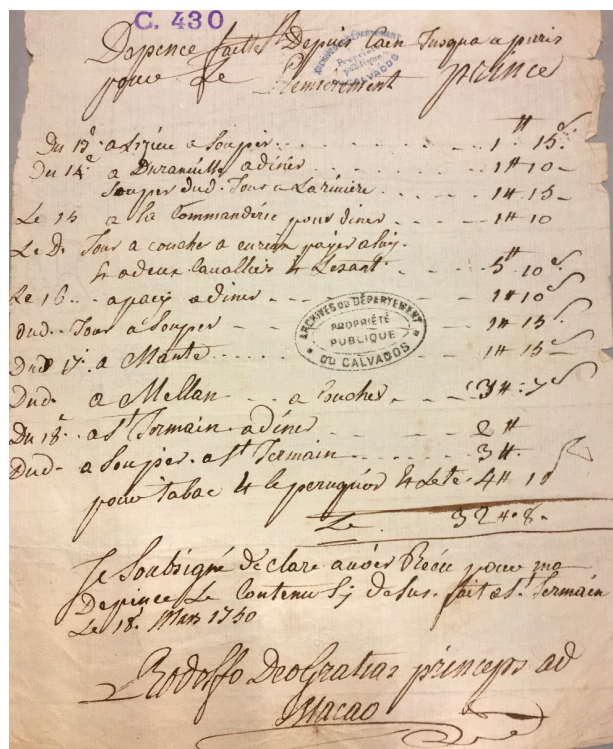 C. 430
Depence faitte Depuis Caen Jusqua a paris
pour Le Premierement prince
ARCHIVES DU DÉPARTEMENT
Propriété
publique
DU CALVADOS
Du 13e a Lizieu a Souper 1 ₶ 15 s
Du 14e a Duranville a diner 1 ₶ 10
Souper dud. Jour a Lariviere 1 ₶ 15
Le 15 a la Commanderie pour diner 1 ₶ 10
Le D. Jour a coucher a payer a luy
& a deux Cavalliers & 5 ₶ 10 s
Le 16 a pacy a diner 1 ₶ 10 s
dud. Jour a Souper 1 ₶ 15 s
Dud 17 a Mante 1 ₶ 15
Dud. a Mellan a Coucher 3 ₶ 7 s
Du 18e a St Jermain a diner 2 ₶
Dud. a Souper a St Jermain 3 ₶
pour tabac & le peruquier & 4 ₶ 10
Le 32 ₶ 8
ARCHIVES DU DÉPARTEMENT
PROPRIÉTÉ
PUBLIQUE
DU CALVADOS
Je Soubsigné déclare avoir Recu pour ma
Depince Le Contenu Cy desus fait a St Jermain
Le 18. Mars 1750
Rodolfo Deo Gratias princeps ad
Macao